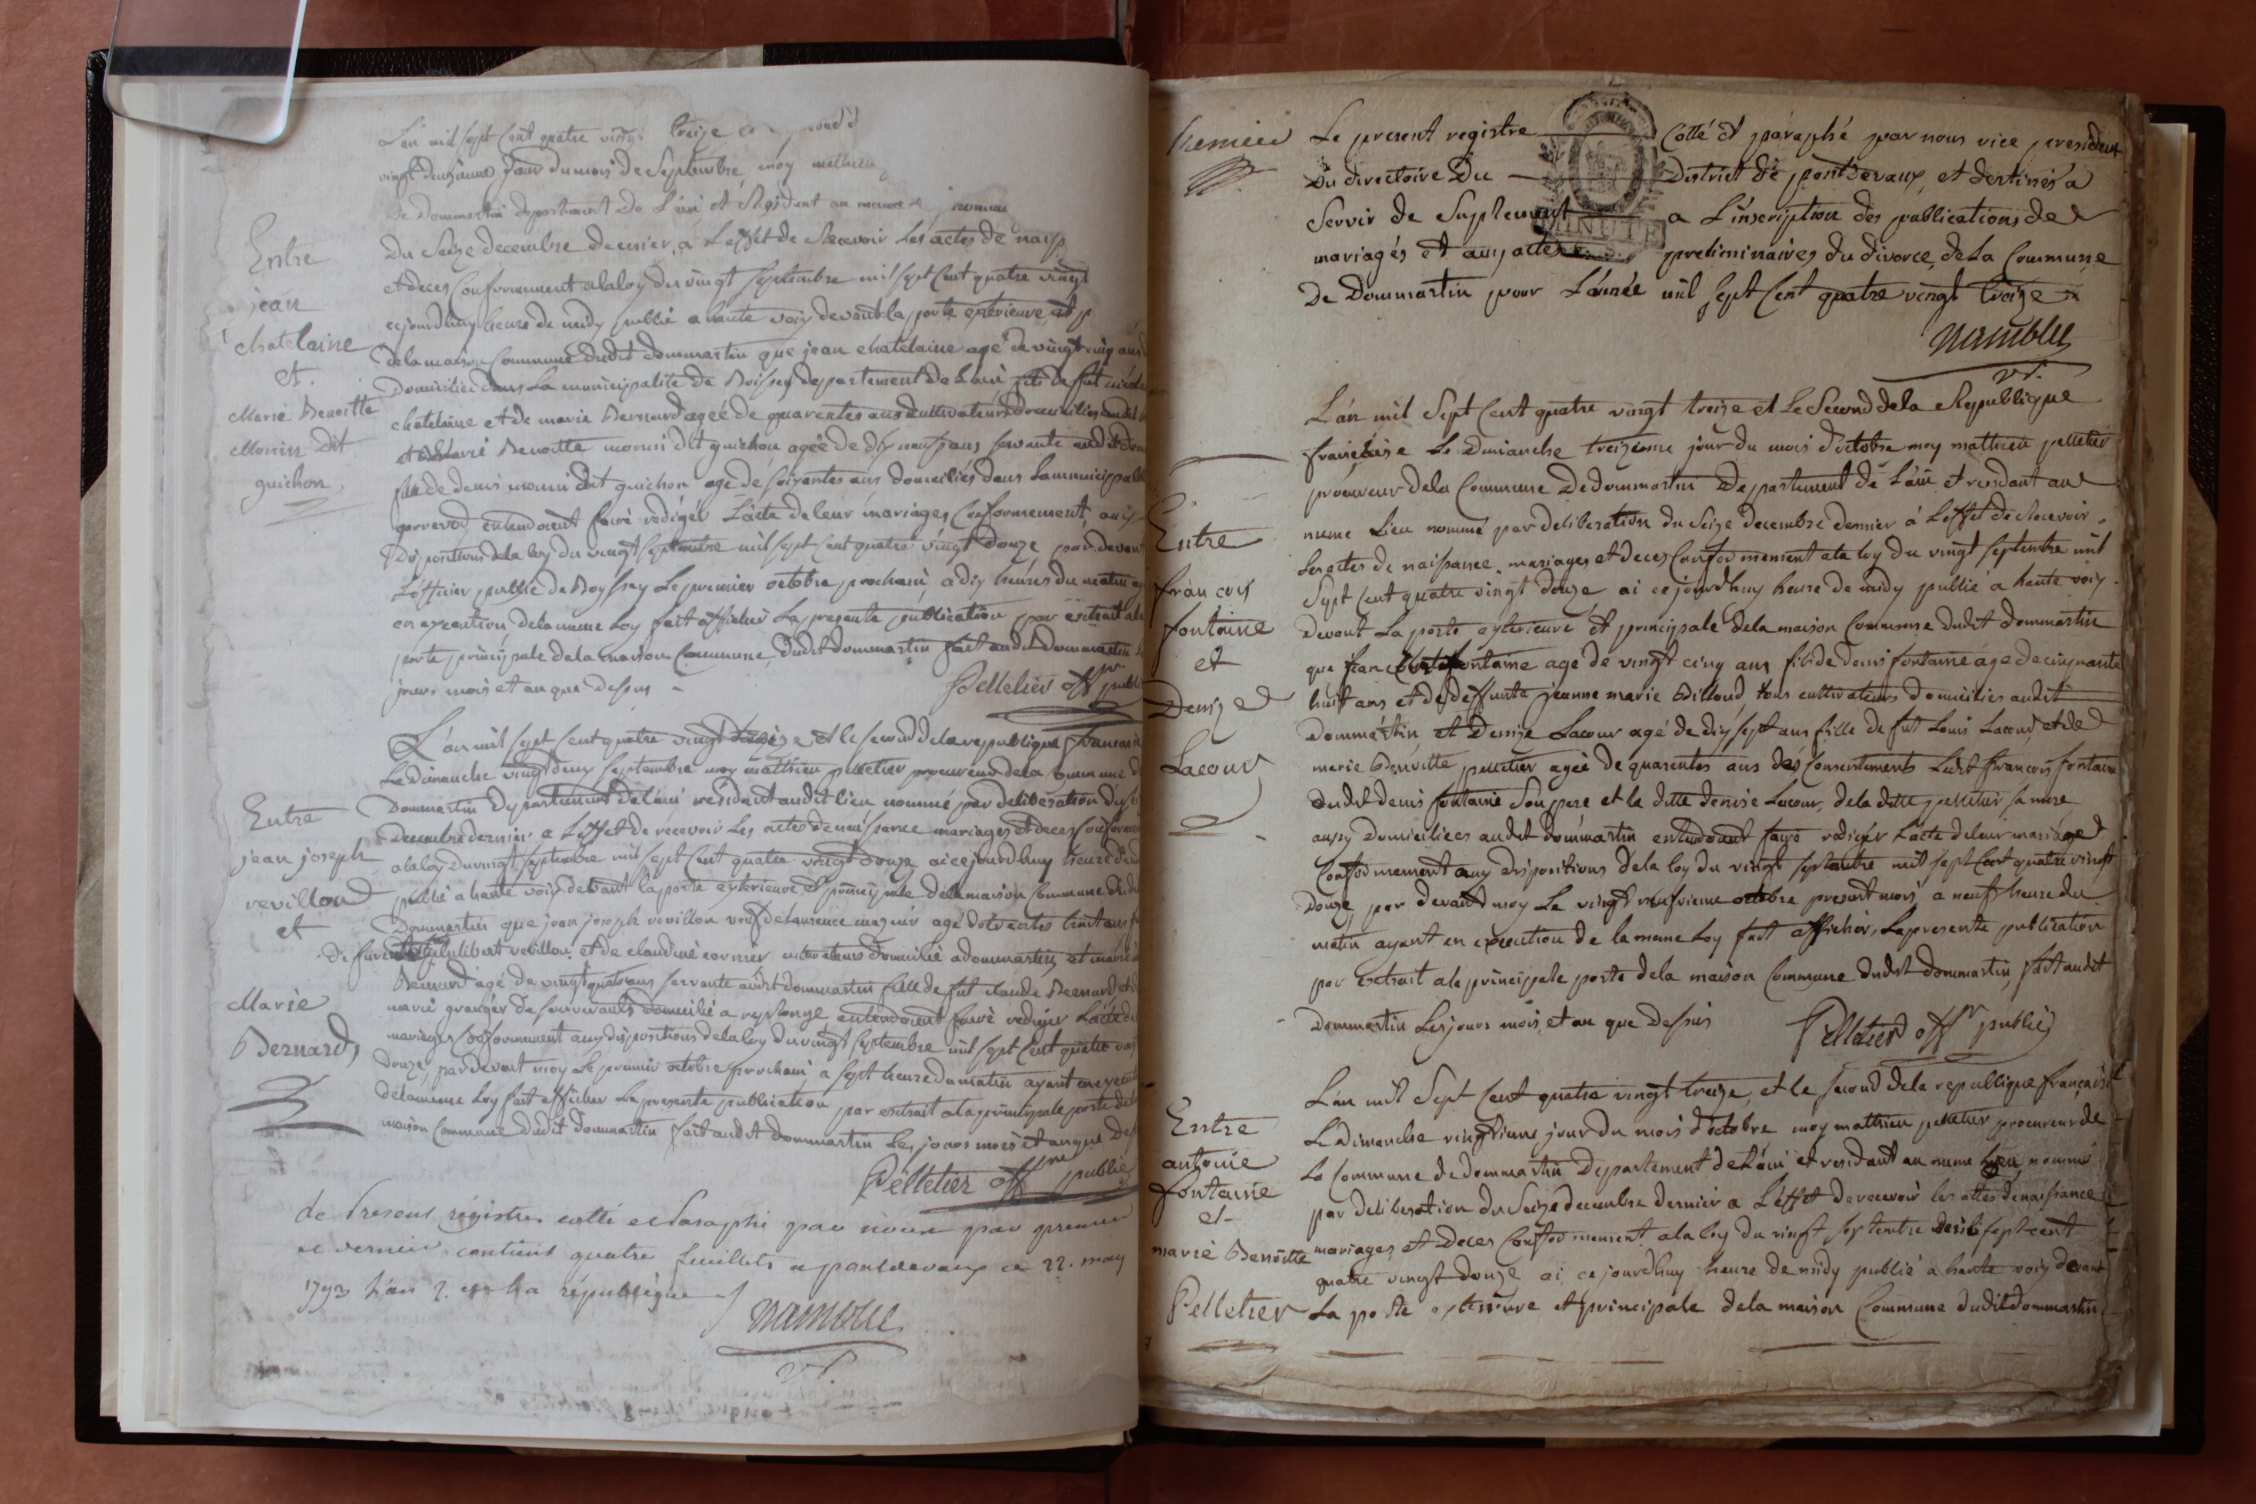 L'an mil sept Cent quatre vingt treize
vingt deuxieme jour du mois de Septembre moy mathieu
de Dommartin departement de L'ain et Residant au meme nommé
Entre
du Seize decembre dernier, a Leffet de Recevoir Les actes de naiss
et deces Conformement a la loy du vingt septembre mil sept Cent quatre vingt
jean
cejourdhuy heure de midy publié a haute voix devant la porte exterieure et p
chatelaine
de la maison Commune dudit dommartin que jean chatelaine agé de vingt cinq ans
et
Domicilié dans La municipalité de Boissey departement de Lain fils de fut
Marie Benoitte
chatelaine et de marie Bernard agée de quarentes ans Cultivateurs Domiciliés audit
Monin Dit
et Marie Benoitte monin dit guichon agée de dix neuf ans servante audit dom
guichon
fille de denis monin dit guichon agé de soixantes ans domiciliés dans La municipalité
gorrevod entendoient faire rediger L'acte de leur mariages Conformement aux
Dispositions de la loy du vingt septembre mil sept Cent quatre vingt douze par devant
L'officier public de Boyssey Le premier octobre prochain, a dix heures du matin
en execution de la meme Loy fait afficher La presente publication par extrait a la
porte principale de la maison Commune dudit dommartin fait audit Dommartin
jours mois et an que dessus
Pelletier offr public
L'an mil sept Cent quatre vingt treize et le second de la republique francaise
Le Dimanche vingt deux septembre moy mathieu pelletier procureur de la Commune de
Entre
Dommartin departement de lain residant audit lieu nommé par deliberation du s
Decembre dernier a Leffet de recevoir Les actes de naissance mariages et deces Conforme
jean joseph
a la loy du vingt septembre mil sept Cent quatre vingt douze ai cejourdhuy heure de
revilloud
publié a haute voix devant la porte exterieure et principale de la maison Commune du
et
Dommartin que jean joseph revillon veuf de laurence mazuir agé de trentes huit ans f
de furent philibert revillon et de claudine cornier cultivateurs domicilié a dommartin et marie
Marie
Bernard agé de vingt quatre ans servante audit dommartin fille de fut claude Bernard et
marie granger da servante domicilié a replonge entendoient faire rediger L'acte de
Bernard
mariages Conformement aux dispositions de la loy du vingt septembre mil sept Cent quatre vin
Douze, par devant moy Le premier octobre prochain a sept heure du matin ayant en execution
de la meme Loy fait afficher La presente publication par extrait a la principale porte de la
maison Commune dudit dommartin fait audit dommartin Les jours mois et an que des
Pelletier offr public
Le Present régistre cotté et Paraphé par nous par premier
et dernier contient quatre feuillets a pontdevaux ce 22. may
1793 L'an 2. de La république
namblec
vp.
premier
Le present registre Cotté et paraphé par nous vice president
du directoire Du District de pontdevaux, et destinés a
Servir de Suplement a L'inscription des publications de
MINUTE
mariages et aux actes preliminaires du divorce, de La Commune
De Dommartin pour L'année mil sept Cent quatre vingt treize
namblec
vp.
L'an mil Sept Cent quatre vingt treize et Le Second de la Republique
française Le Dimanche treizeme jour du mois d'octobre moy mathieu pelletier
procureur de la Commune De dommartin Departement de L'ain et residant au
meme Lieu nommé par deliberation du Seize decembre dernier a Leffet de Recevoir
Entre
Les actes de naissance mariages et deces Conformement a la loy du vingt septembre mil
françois
Sept Cent quatre vingt douze ai cejourdhuy heure de midy publié a haute voix
fontaine
Devant La porte exterieure et principale de la maison Commune dudit dommartin
et
que francois fontaine agé de vingt cinq ans fils de denis fontaine agé de cinquante
Denize
huit ans et de deffunte jeanne marie Billoud tous cultivateurs domiciliés audit
Dommartin et Denize Lacour agé de dix sept ans fille de fut Louis Lacour et de
Lacour
marie Benoitte pelletier agée de quarentes ans des Consentements Ledit françois fontaine
dudit denis fontaine Son pere et la ditte denise Lacour, de la ditte pelletier sa mere
aussy Domiciliées audit dommartin entendoient faire rediger L'acte de leur mariage
Conformement aux dispositions de la loy du vingt septembre mil sept Cent quatre vingt
Douze, par devant moy Le vingt neufvieme octobre present mois a neuf heure du
matin ayant en execution de la meme Loy fait afficher, La presente publication
par Extrait a la principale porte de la maison Commune dudit dommartin, fait audit
Dommartin Les jours mois et an que dessus
Pelletier offr public
L'an mil Sept Cent quatre vingt treize, et le second de la republique française
Entre
Le dimanche vingtieme jour du mois d'octobre moy mathieu pelletier procureur de
antoine
La Commune de dommartin Departement de L'ain et residant au meme Lieu, nommé
fontaine
par deliberation du Seize decembre dernier a L'effet de recevoir les actes de naissance
et
marie Benoitte
mariages et deces Conformement a la loy du vingt septembre mil sept cent
quatre vingt douze ai cejourdhuy heure de midy publié a haute voix devant
Pelletier
La porte exterieure et principale de la maison Commune dudit dommartin